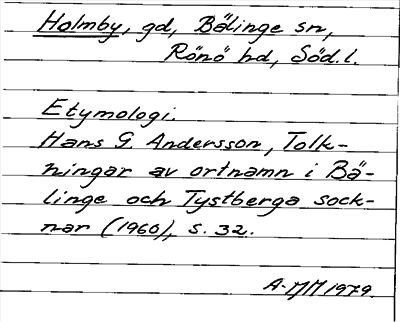 Holmby, gd, Bälinge sn,
Rönö hd, Söd.l.
Etymologi.
Hans G. Andersson, Tolk-
ningar av ortnamn i Bä-
linge och Tystberga sock-
nar (1960), s. 32.
A-MM 1979.